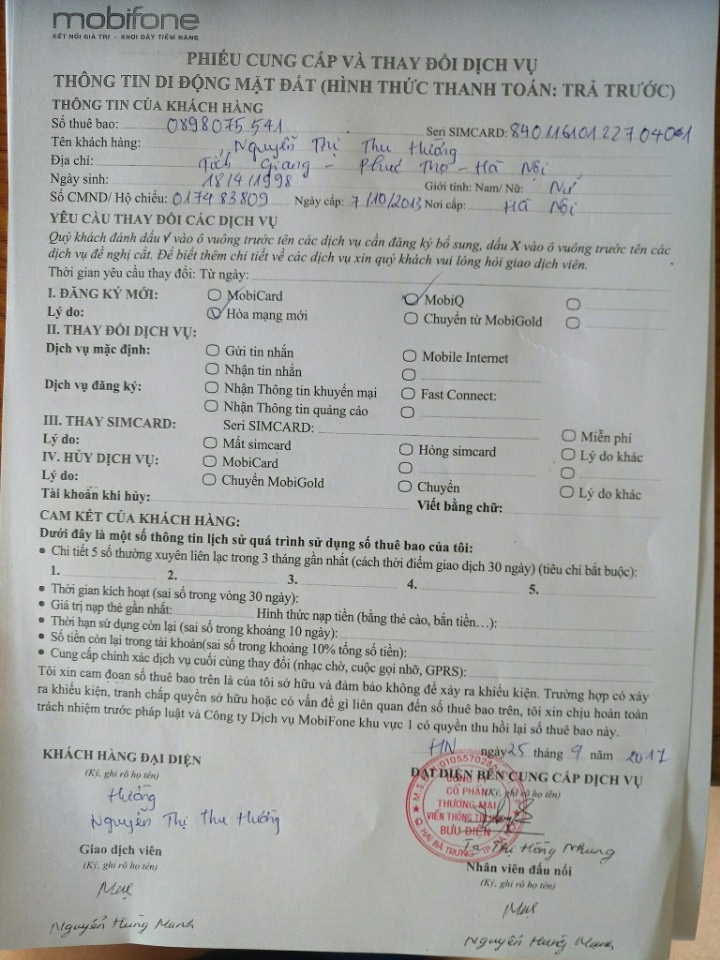 mobifone
KẾT NỐI GIÁ TRỊ - KHƠI DẬY TIỀM NĂNG
PHIẾU CUNG CẤP VÀ THAY ĐỔI DỊCH VỤ
THÔNG TIN DI ĐỘNG MẶT ĐẤT (HÌNH THỨC THANH TOÁN: TRẢ TRƯỚC)
THÔNG TIN CỦA KHÁCH HÀNG
Số thuê bao: 0898075541 Seri SIMCARD:
Tên khách hàng: Nguyễn Thị Thu Hường
Địa chỉ: Tích Giang - Phúc Thọ - Hà Nội
Ngày sinh: 18/4/1998 Giới tính: Nam/ Nữ: Nữ
Số CMND/ Hộ chiếu: 017483809 Ngày cấp: 7/10/2013 Nơi cấp: Hà Nội
YÊU CẦU THAY ĐỔI CÁC DỊCH VỤ
Quý khách đánh dấu √ vào ô vuông trước tên các dịch vụ cần đăng ký bổ sung, dấu X vào ô vuông trước tên các
dịch vụ đề nghị cắt. Để biết thêm chi tiết về các dịch vụ xin quý khách vui lòng hỏi giao dịch viên.
Thời gian yêu cầu thay đổi: Từ ngày:
I. ĐĂNG KÝ MỚI: MobiCard MobiQ
Lý do: Hòa mạng mới Chuyển từ MobiGold
II. THAY ĐỔI DỊCH VỤ:
Dịch vụ mặc định: Gửi tin nhắn Mobile Internet
Nhận tin nhắn
Dịch vụ đăng ký: Nhận Thông tin khuyến mại Fast Connect:
Nhận Thông tin quảng cáo
III. THAY SIMCARD: Seri SIMCARD: Miễn phí
Lý do: Mất simcard Hỏng simcard Lý do khác
IV. HỦY DỊCH VỤ: MobiCard
Lý do: Chuyển MobiGold Chuyển Lý do khác
Tài khoản khi hủy: Viết bằng chữ:
CAM KẾT CỦA KHÁCH HÀNG:
Dưới đây là một số thông tin lịch sử quá trình sử dụng số thuê bao của tôi:
• Chi tiết 5 số thường xuyên liên lạc trong 3 tháng gần nhất (cách thời điểm giao dịch 30 ngày) (tiêu chí bắt buộc):
1. 2. 3. 4. 5.
• Thời gian kích hoạt (sai số trong vòng 30 ngày):
• Giá trị nạp thẻ gần nhất: Hình thức nạp tiền (bằng thẻ cào, bắn tiền…):
• Thời hạn sử dụng còn lại (sai số trong khoảng 10 ngày):
• Số tiền còn lại trong tài khoản(sai số trong khoảng 10% tổng số tiền):
• Cung cấp chính xác dịch vụ cuối cùng thay đổi (nhạc chờ, cuộc gọi nhỡ, GPRS):
Tôi xin cam đoan số thuê bao trên là của tôi sở hữu và đảm bảo không để xảy ra khiếu kiện. Trường hợp có xảy
ra khiếu kiện, tranh chấp quyền sở hữu hoặc có vấn đề gì liên quan đến số thuê bao trên, tôi xin chịu hoàn toàn
trách nhiệm trước pháp luật và Công ty Dịch vụ MobiFone khu vực 1 có quyền thu hồi lại số thuê bao này.
HN ngày 25 tháng 9 năm 2017
KHÁCH HÀNG ĐẠI DIỆN ĐẠI DIỆN BÊN CUNG CẤP DỊCH VỤ
(Ký, ghi rõ họ tên) (Ký, ghi rõ họ tên)
CỔ PHẦN
THƯƠNG MẠI
VIỄN THÔNG
BƯU ĐIỆN
HAI BÀ TRƯNG
Hường
Nguyễn Thị Thu Hường Tạ Thị Hồng Nhung
Giao dịch viên Nhân viên đấu nối
(Ký, ghi rõ họ tên) (Ký, ghi rõ họ tên)
Nguyễn Hùng Mạnh Nguyễn Hùng Mạnh